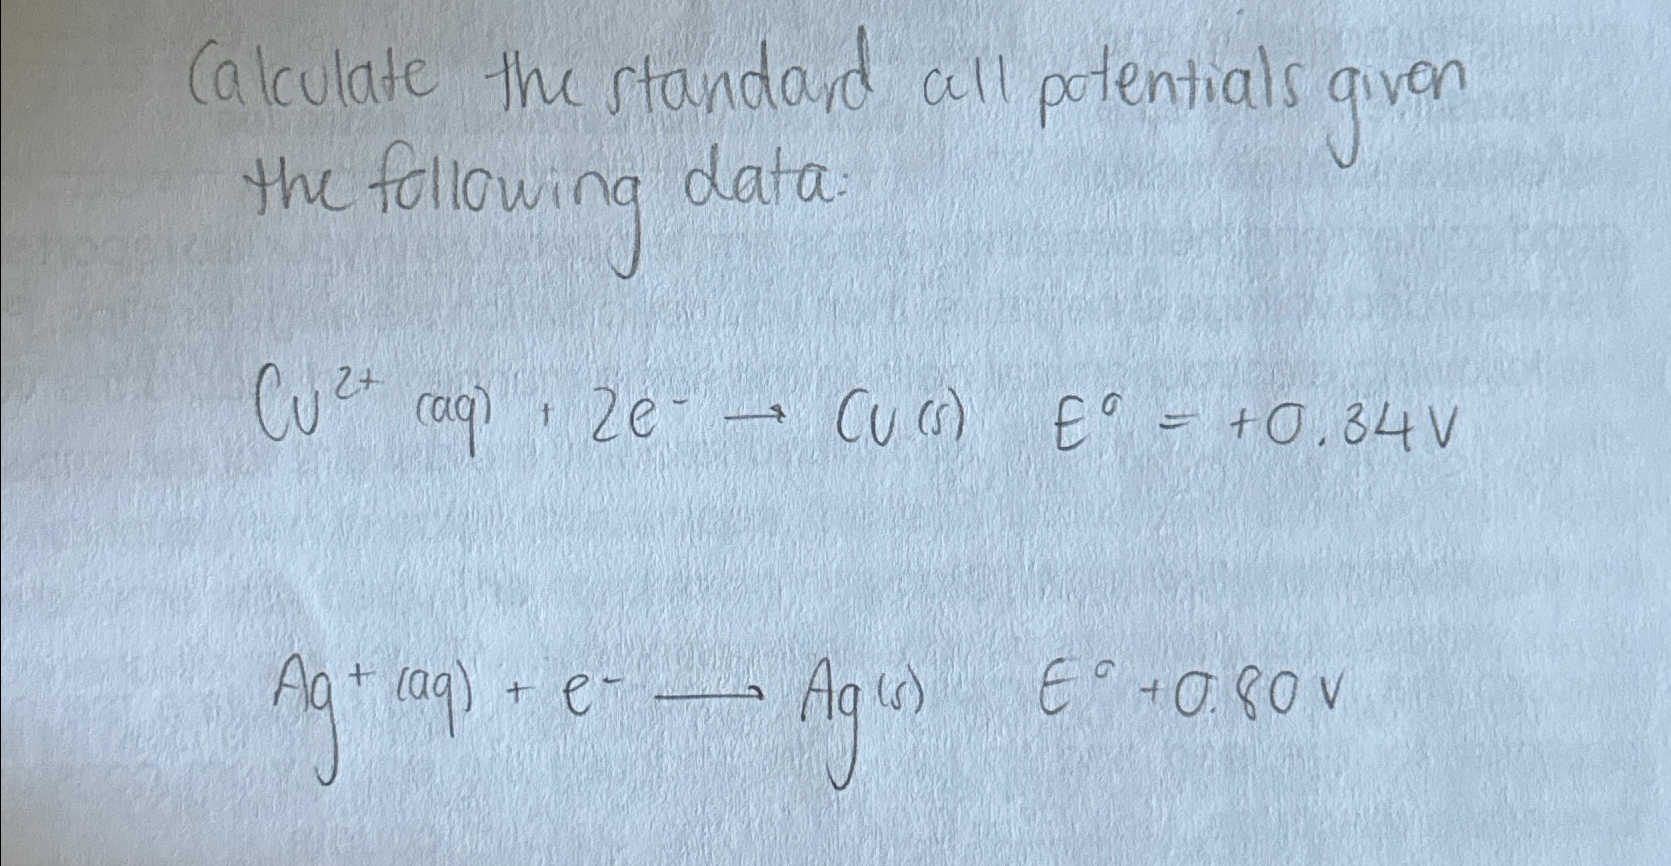 Calculate the standard cell potentials given
the following data:
Cu²⁺ (aq) + 2e⁻ → Cu (s) E° = +0.34 V
Ag⁺ (aq) + e⁻ → Ag (s) E° +0.80 V